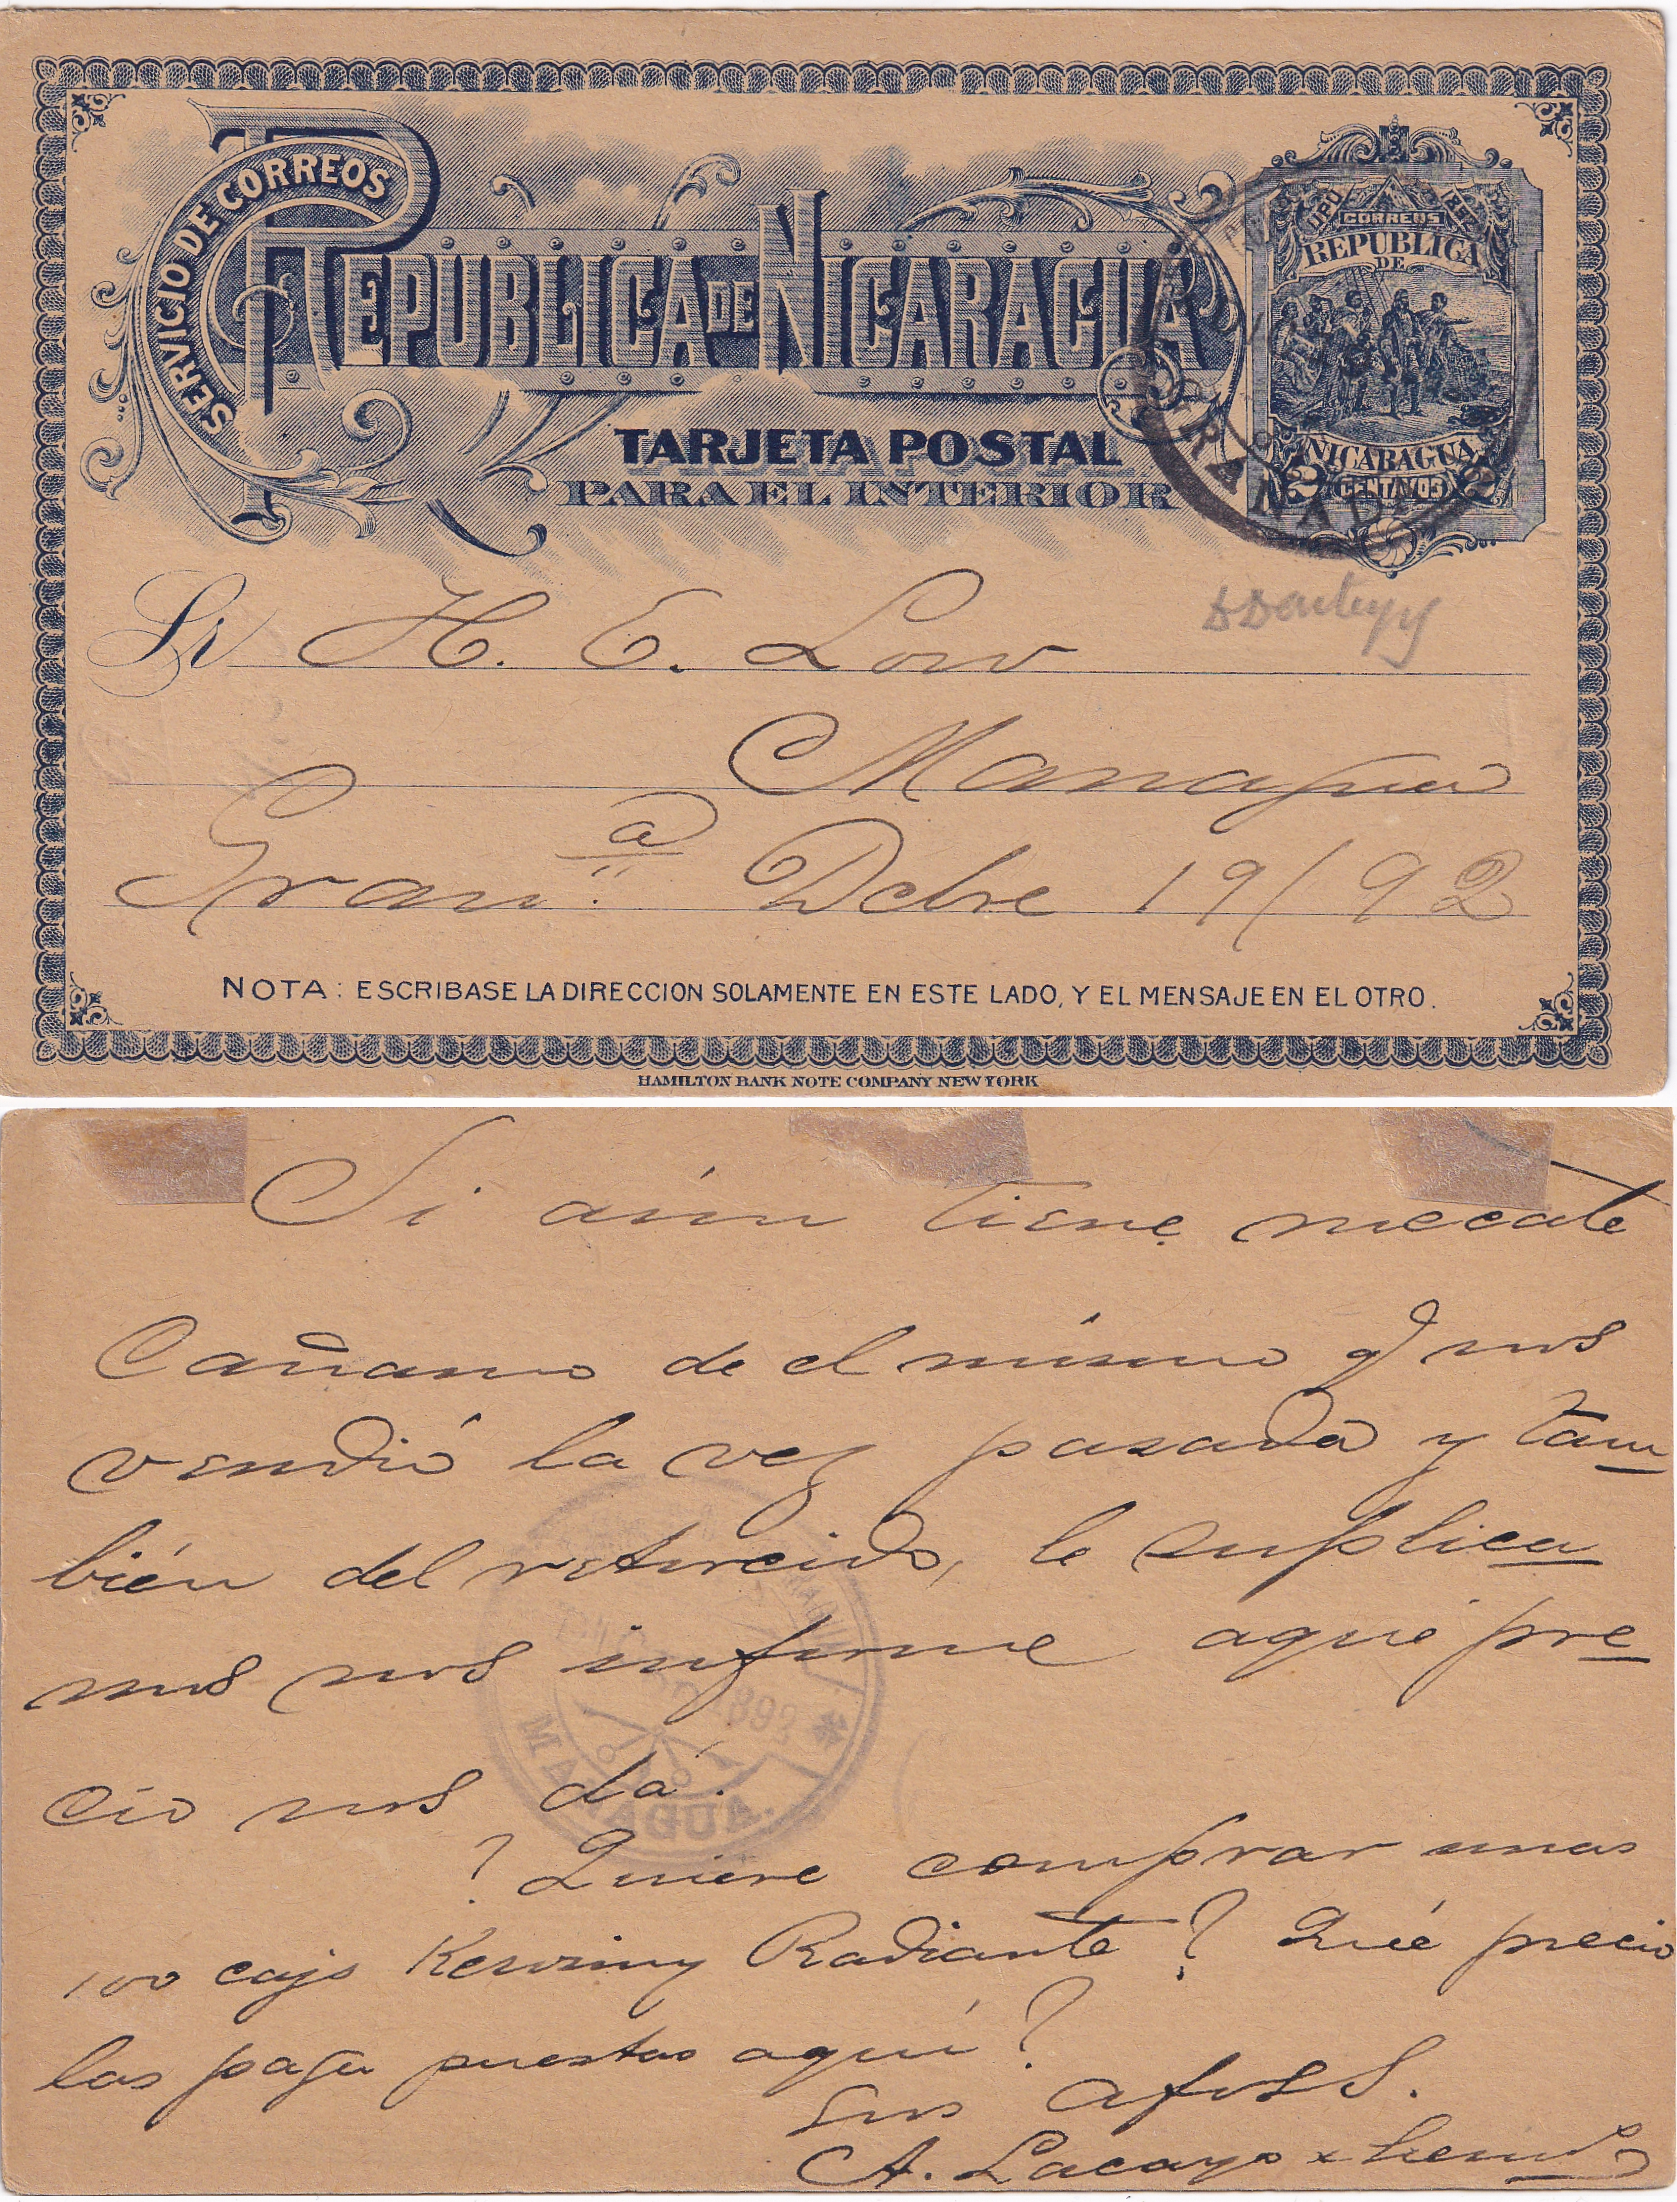 SERVICIO DE CORREOS
REPUBLICA DE NICARAGUA
TARJETA POSTAL
PARA EL INTERIOR
UPU
CORREOS
REPUBLICA
DE
NICARAGUA
2 CENTAVOS 2
GRANADA
Sr H. E. Low
Managua
Gran.a Dcbre 19/92
NOTA: ESCRIBASE LA DIRECCION SOLAMENTE EN ESTE LADO, Y EL MENSAJE EN EL OTRO.
HAMILTON BANK NOTE COMPANY NEW YORK
Si aún tiene mecate
Cáñamo de el mismo q nos
vendió la vez pasada y tam
bién del retorcido, le suplica
mos nos informe aque pre
cio nos dá.
? Quiere comprar unas
100 cajs Radiante? Qué precio
las paga puestas aquí?
Sus afmos S.
A. Lacayo
1893
MANAGUA.